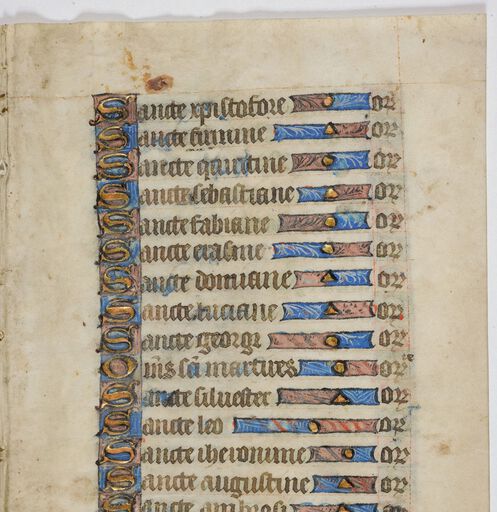 Sancte xpistofore or
Sancte firmine or
Sancte quintine or
Sancte sebastiane or
Sancte fabiane or
Sancte erasme or
Sancte domiciane or
Sancte luciane or
Sancte georgi or
Oms sci martires or
Sancte silvester or
Sancte leo or
Sancte iheronime or
Sancte augustine or
Sancte ambrosi or